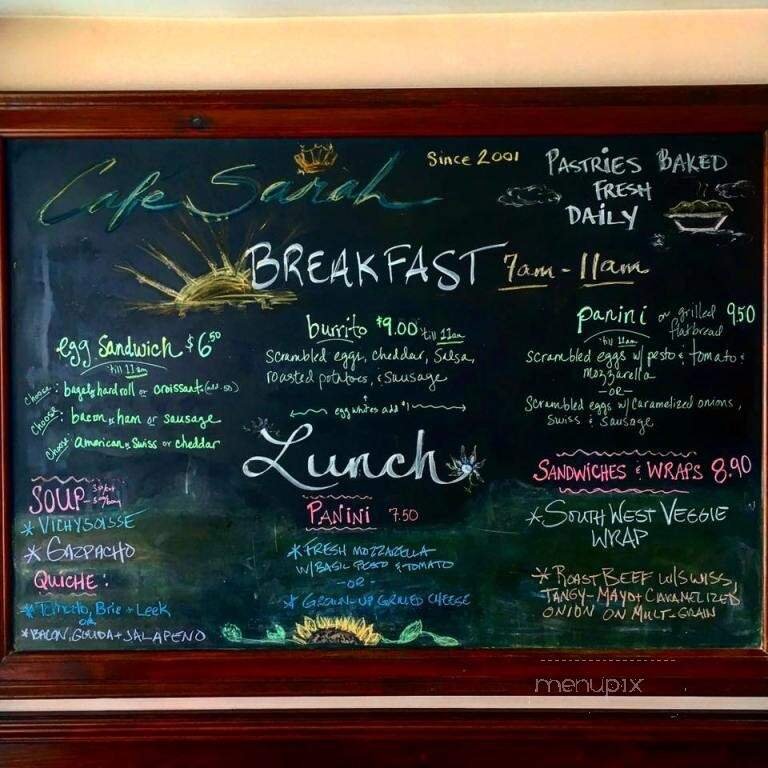 Café Sarah
Since 2001
PASTRIES BAKED
FRESH
DAILY
BREAKFAST 7am - 11am
egg Sandwich $6.50
'till 11am
Choose: bagel, hard roll or croissant (add .50)
Choose: bacon, ham or sausage
Choose: american, swiss or cheddar
burrito $9.00 'till 11am
Scrambled eggs, cheddar, Salsa,
roasted potatoes, & Sausage
egg whites add $1
panini or grilled flatbread 9.50
'till 11am
Scrambled eggs w/ pesto & tomato &
mozzarella
-OR-
Scrambled eggs w/ Caramelized onions,
Swiss & Sausage
Lunch
SOUP
* VICHYSOISSE
* GAZPACHO
QUICHE:
* Tomato, Brie + Leek
OR
* BACON, GOUDA + JALAPENO
PANINI 7.50
* FRESH MOZZARELLA
W/ BASIL PESTO & TOMATO
-OR-
* GROWN-UP GRILLED CHEESE
SANDWICHES & WRAPS 8.90
* SOUTH WEST VEGGIE
WRAP
* ROAST BEEF W/ SWISS,
TANGY-MAYO + CARAMELIZED
ONION ON MULT-GRAIN
menupix